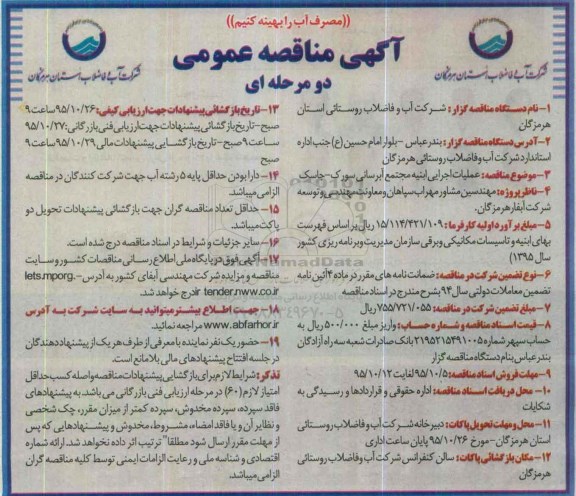 ((مصرف آب را بهینه کنیم))
آگهی مناقصه عمومی
دو مرحله ای
شرکت آب و فاضلاب استان هرمزگان
شرکت آب و فاضلاب استان هرمزگان
۱- نام دستگاه مناقصه گزار: شرکت آب و فاضلاب روستائی استان
هرمزگان
۲- آدرس دستگاه مناقصه گزار: بندرعباس -بلوار امام حسین (ع) جنب اداره
استاندارد شرکت آب و فاضلاب روستائی هرمزگان
۳- موضوع مناقصه: عملیات اجرایی ابنیه مجتمع آبرسانی سورک-جاسک
۴- ناظر پروژه: مهندسین مشاور مهراب سپاهان و معاونت مهندسی و توسعه
شرکت آبفار هرمزگان.
۵- مبلغ برآورد اولیه کارفرما: ۱۵/۱۱۴/۴۲۱/۱۰۹ ریال بر اساس فهرست
بهای ابنیه و تاسیسات مکانیکی و برقی سازمان مدیریت و برنامه ریزی کشور
سال ۱۳۹۵)
۶- نوع تضمین شرکت در مناقصه: ضمانت نامه های مقرر در ماده ۴ آئین نامه
تضمین معاملات دولتی سال ۹۴ بشرح مندرج در اسناد مناقصه
۷- مبلغ تضمین شرکت در مناقصه: ۷۵۵/۷۲۱/۰۵۵ ریال
۸- قیمت اسناد مناقصه و شماره حساب: واریز مبلغ ۵۰۰/۰۰۰ ریال به
حساب سپهر شماره ۲۱۹۵۲۱۵۴۹۱۰۰۵ بانک صادرات شعبه سه راه آزادگان
بندرعباس بنام دستگاه مناقصه گزار
۹- مهلت فروش اسناد مناقصه: ۹۵/۱۰/۵ لغایت ۹۵/۱۰/۱۲
۱۰- محل دریافت اسناد مناقصه: اداره حقوقی و قراردادها و رسیدگی به
شکایات
۱۱- محل و مهلت تحویل پاکات: دبیرخانه شرکت آب و فاضلاب روستائی
استان هرمزگان -مورخ ۹۵/۱۰/۲۶ پایان ساعت اداری
۱۲- مکان بازگشائی پاکات: سالن کنفرانس شرکت آب و فاضلاب روستائی
هرمزگان
۱۳- تاریخ بازگشائی پیشنهادات جهت ارزیابی کیفی: ۹۵/۱۰/۲۶ ساعت ۹
صبح -تاریخ بازگشائی پیشنهادات جهت ارزیابی فنی بازرگانی: ۹۵/۱۰/۲۷
ساعت ۹ صبح - تاریخ بازگشایی پیشنهادات مالی ۹۵/۱۰/۲۹ ساعت ۹
صبح
۱۴- دارا بودن حداقل پایه ۵ رشته آب جهت شرکت کنندگان در مناقصه
الزامی میباشد.
۱۵- حداقل تعداد مناقصه گران جهت بازگشائی پیشنهادات تحویل دو
پاکت میباشد.
۱۶- سایر جزئیات و شرایط در اسناد مناقصه درج شده است.
۱۷- آگهی فوق در پایگاه ملی اطلاع رسانی مناقصات کشور و سایت
مناقصه و مزایده شرکت مهندسی آبفای کشور به آدرس -iets.mporg.
ir tender.nww.co.ir درج خواهد شد.
۱۸- جهت اطلاع بیشتر میتوانید به سایت شرکت به آدرس
www.abfarhor.ir مراجعه نمائید.
۱۹- حضور یک نفر نماینده با معرفی از طرف هر یک از پیشنهاد دهندگان
در جلسه افتتاح پیشنهادهای مالی بلامانع است.
تذکر: شرایط لازم برای بازگشایی پیشنهادات مناقصه واصله کسب حداقل
امتیاز لازم (۶۰) در مرحله ارزیابی فنی بازرگانی می باشد. به پیشنهادهای
فاقد سپرده، سپرده مخدوش، سپرده کمتر از میزان مقرر، چک شخصی
و نظایر آن و یا فاقد امضاء، مشروط، مخدوش و پیشنهادهایی که پس
از مهلت مقرر ارسال شود مطلقا" ترتیب اثر داده نخواهد شد. ارائه شماره
اقتصادی و شناسه ملی و رعایت الزامات ایمنی توسط کلیه مناقصه گران
الزامی میباشد.